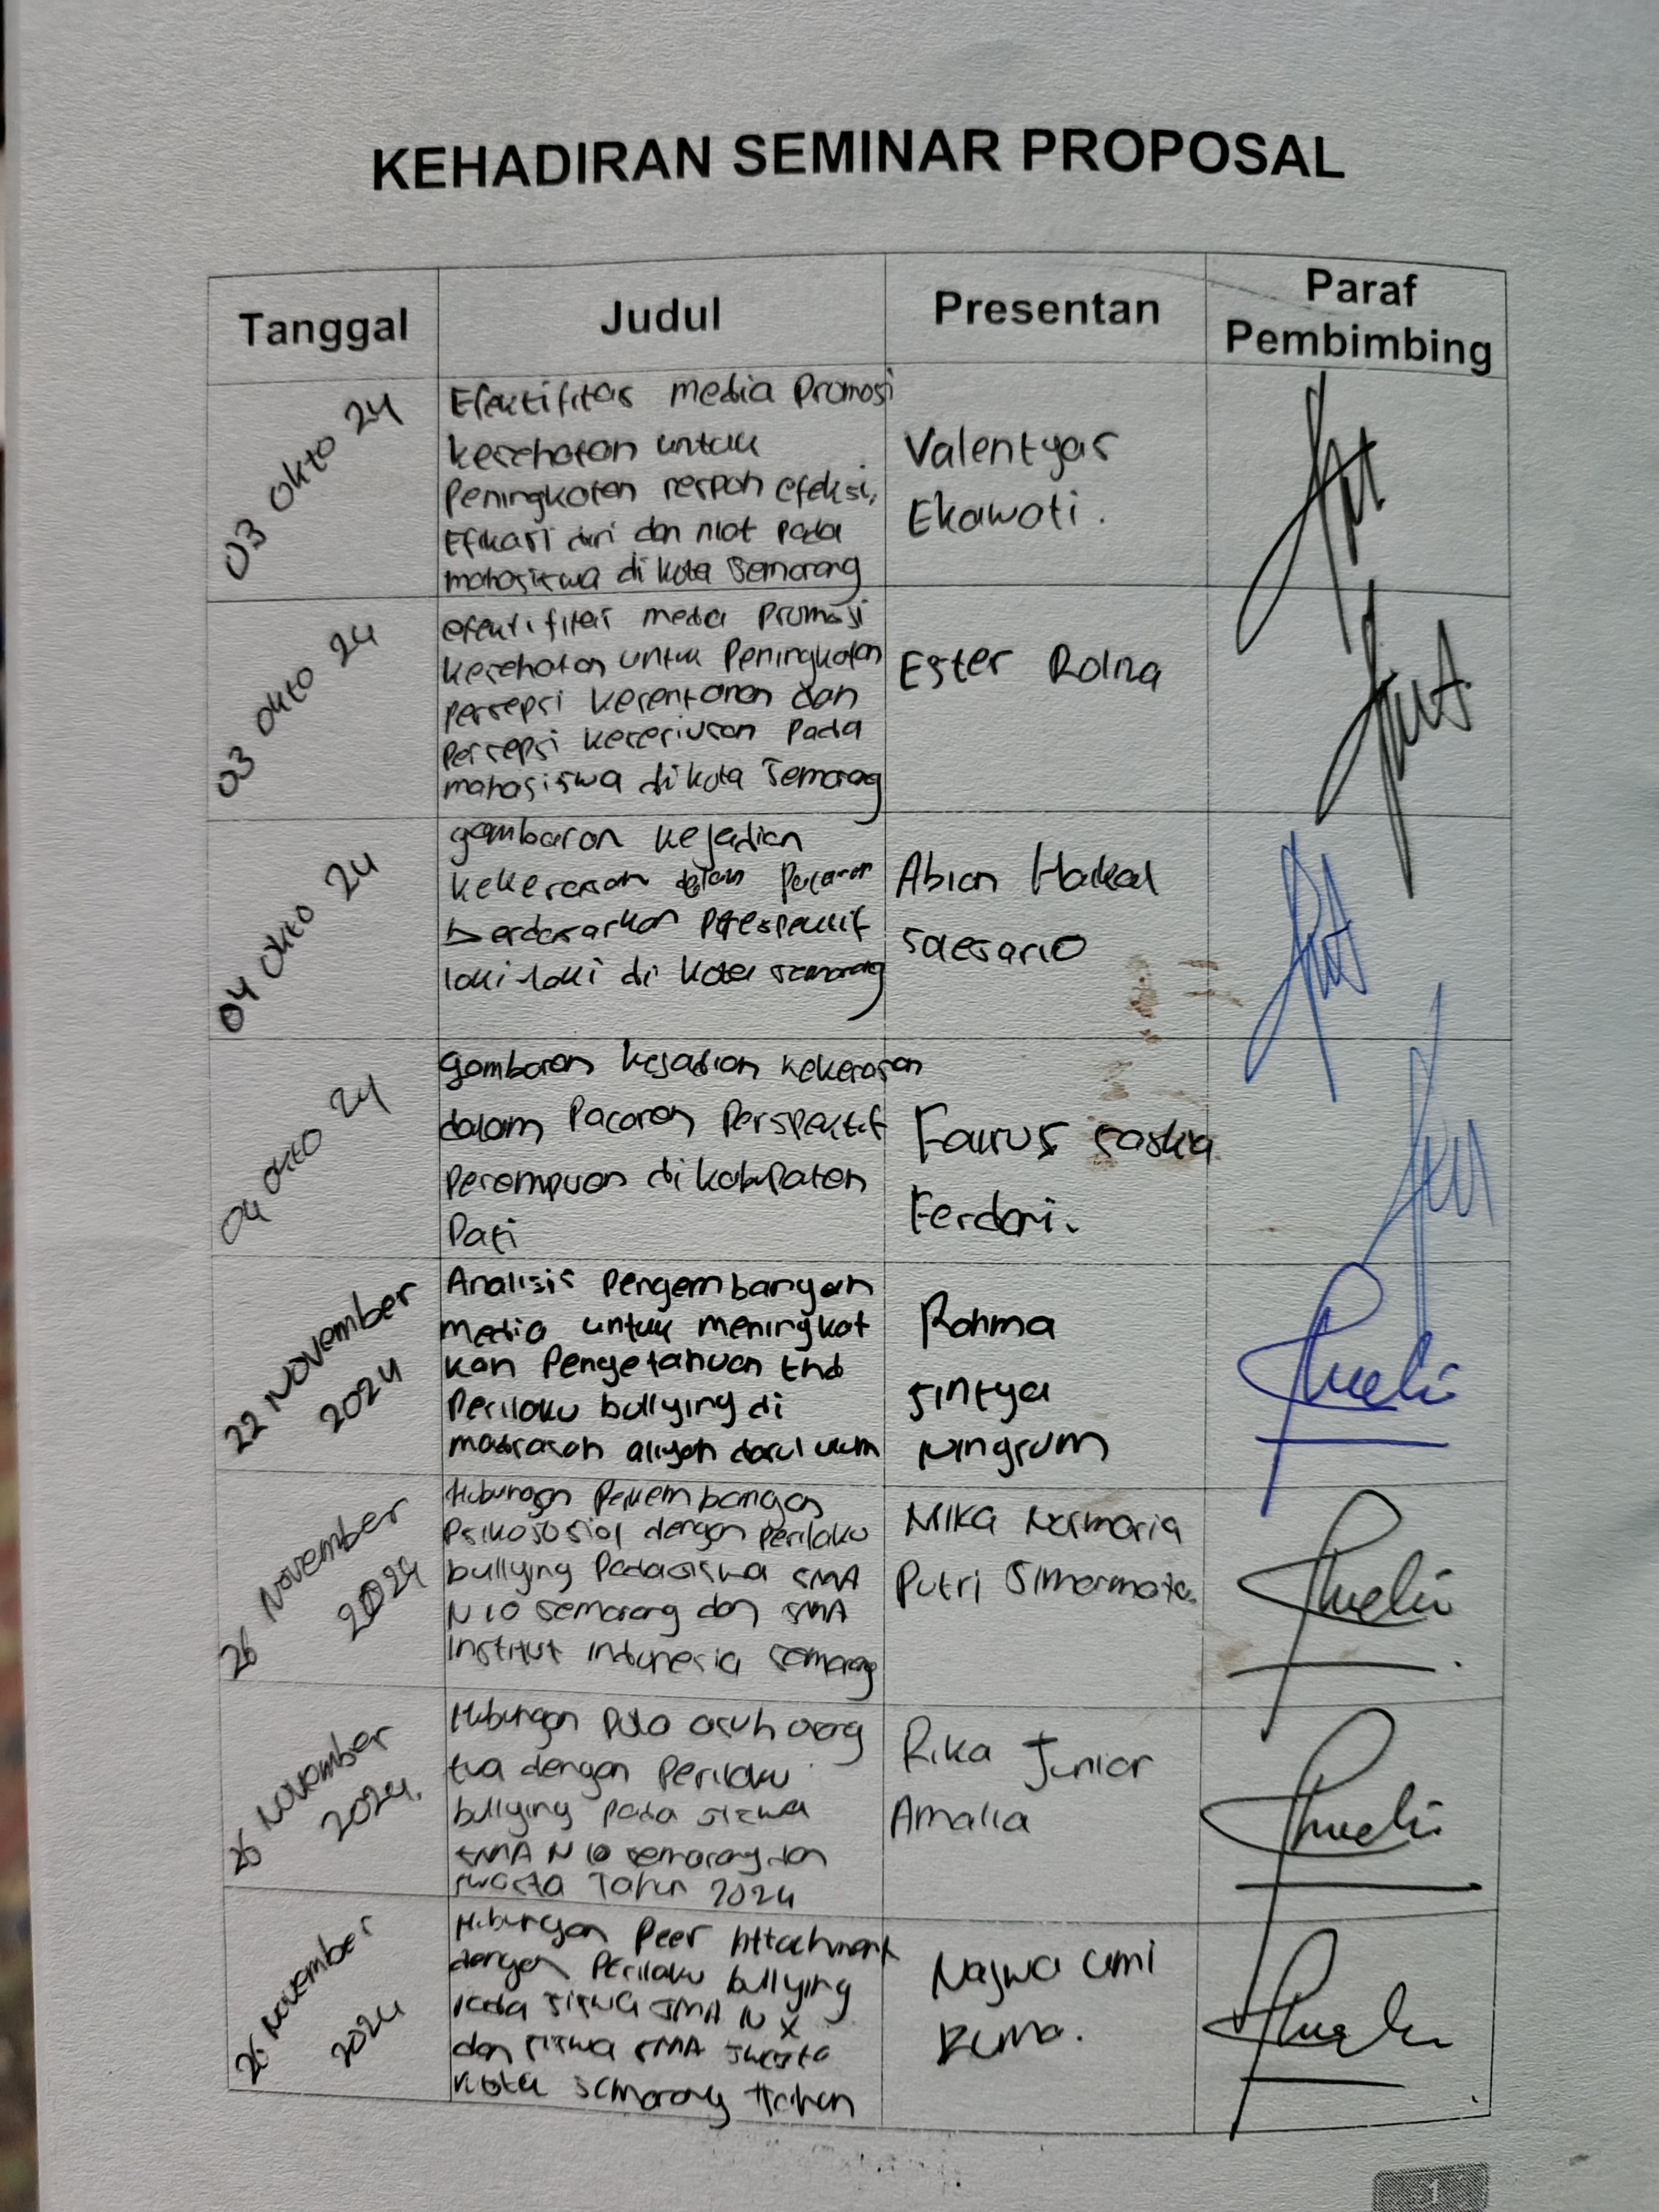 KEHADIRAN SEMINAR PROPOSAL
Tanggal
Judul
Presentan
Paraf
Pembimbing
03 okto 24
Efektifitas media Promosi
kesehatan untuk
Peningkatan respon efeksi,
Efikasi diri dan niat pada
mahasiswa di kota Semarang
Valentyas
Ekawati.
03 okto 24
efektifitas media Promosi
kesehatan untuk Peningkatan
Persepsi kerentanan dan
Persepsi keseriusan Pada
mahasiswa di kota Semarang
Ester Rolna
04 okto 24
gambaran kejadian
kekerasan dalam Pacaran
berdasarkan
laki-laki di Kota semarang
Abian Haikal
Saesario
04 okto 24
gambaran kejadian kekerasan
dalam Pacaran Perspektif
Perempuan di kabupaten
Pati
Fairus saskia
Ferdani.
22 November
2024
Analisis Pengembangan
media untuk meningkat
kan Pengetahuan thd
Perilaku bullying di
madrasah aliyah darul ulum
Rahma
sintya
Ningrum
26 November
2024
Hubungan Perkembangan
Psikososial dengan perilaku
bullying Pada siswa SMA
N 10 Semarang dan SMA
Institut Indonesia Semarang
Mika Normaria
Putri Simarmata.
26 November
2024.
Hubungan Pola asuh orang
tua dengan Perilaku
bullying pada siswa
SMA N 10 semarang dan
swasta Tahun 2024
Rika Junior
Amalia
26 November
2024
Hubungan Peer Attachment
dengan Perilaku bullying
Pada siswa SMA N X
dan siswa SMA swasta
Kota Semarang
Najwa Umi
1